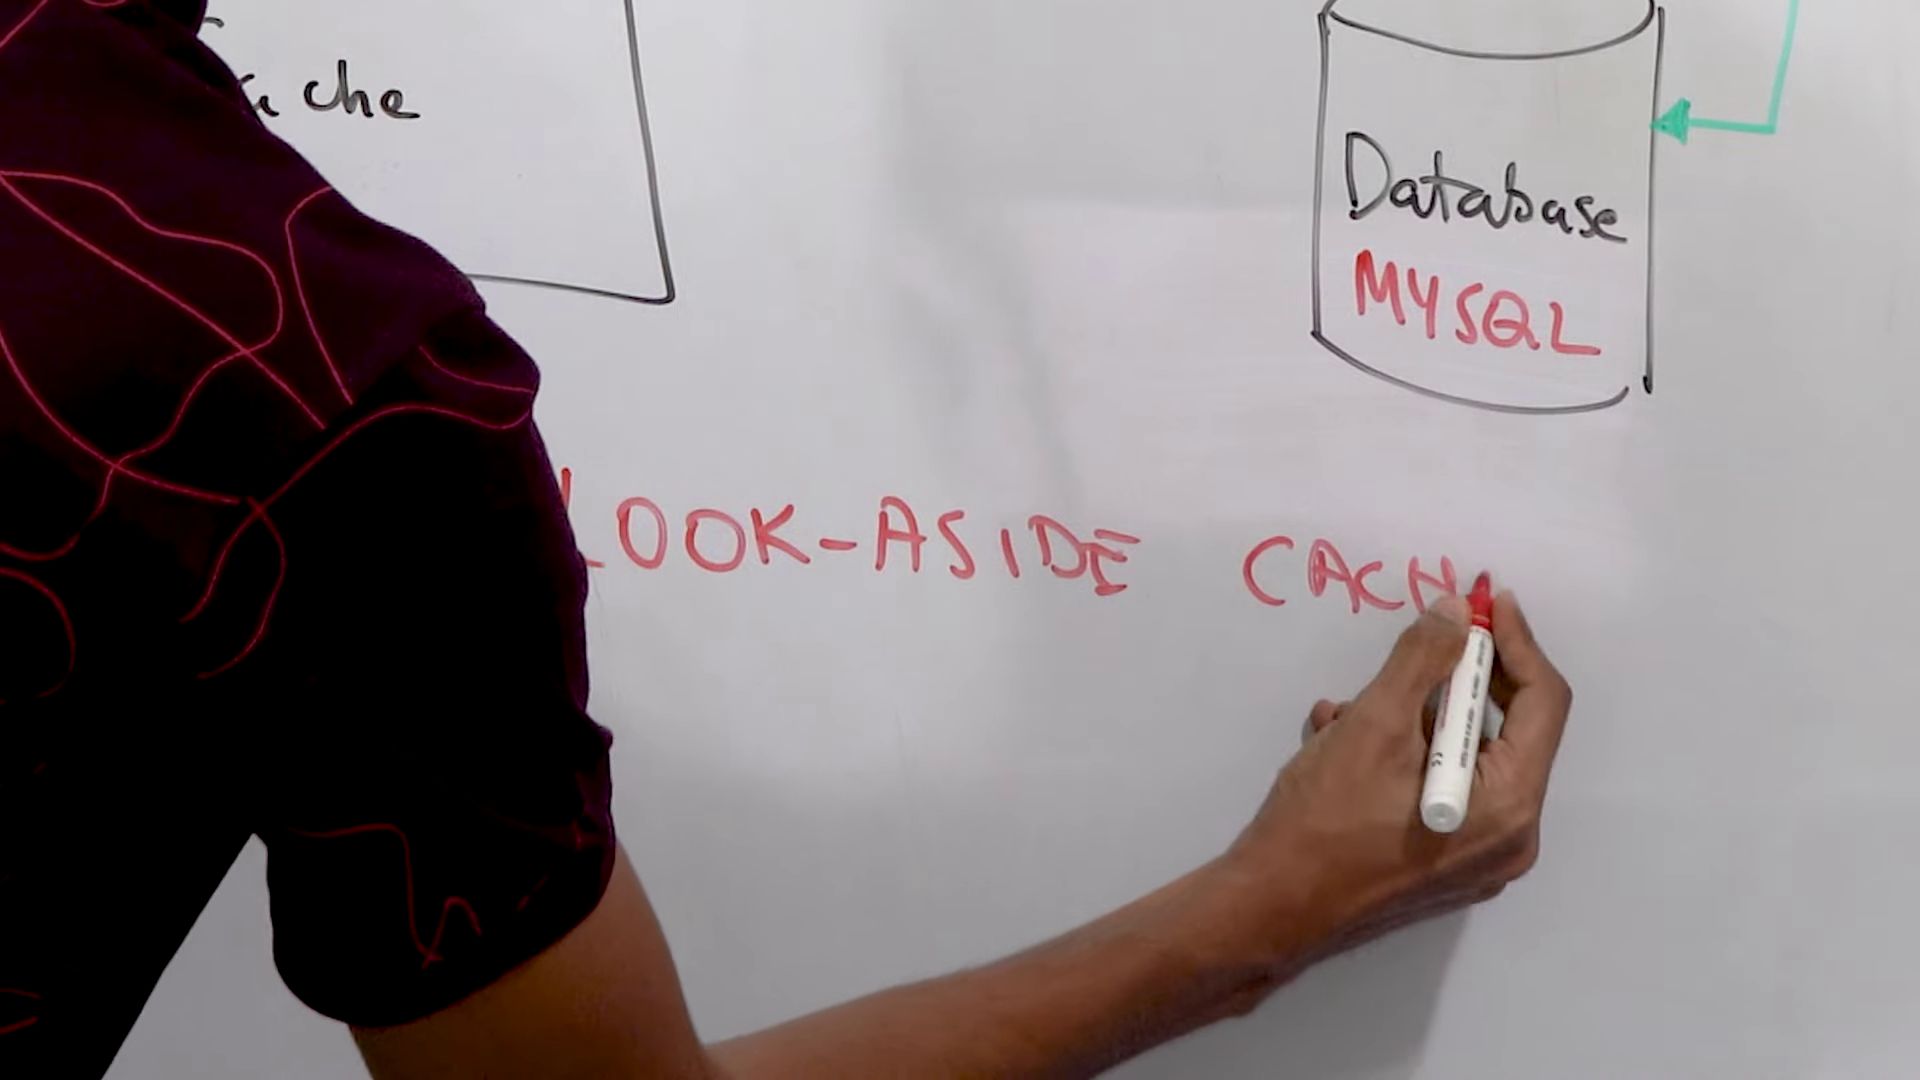 che
Database
MYSQL
LOOK-ASIDE CACH